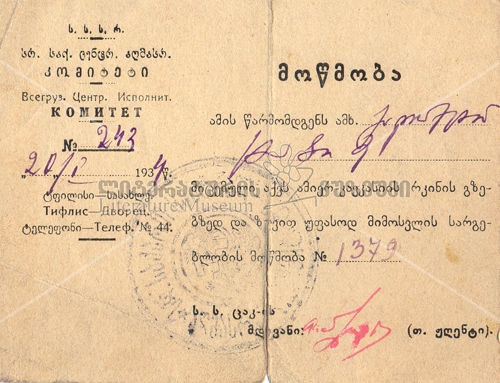 ს. ს. ს. რ.
სრ. საქ. ცენტრ. აღმასრ.
კომიტეტი
Всегруз. Центр. Исполнит.
КОМИТЕТ
№ 243
„20/I 1934 წ.
ტფილისი–სასახლე.
Тифлис—Дворец.
ტელეფონი–Телеф. № 44.
მოწმობა
ამის წარმომდგენს ამხ.
მიცემული აქვს ამიერ-კავკასიის რკინის გზე-
ბზედ და ზღვით უფასოდ მიმოსვლის სარგე-
ბლობის მოწმობა № 1379
ს. ს. ცაკ-ის
მდივანი: (თ. ჟღენტი).
ლიტერატურის მუზეუმი
Literature Museum